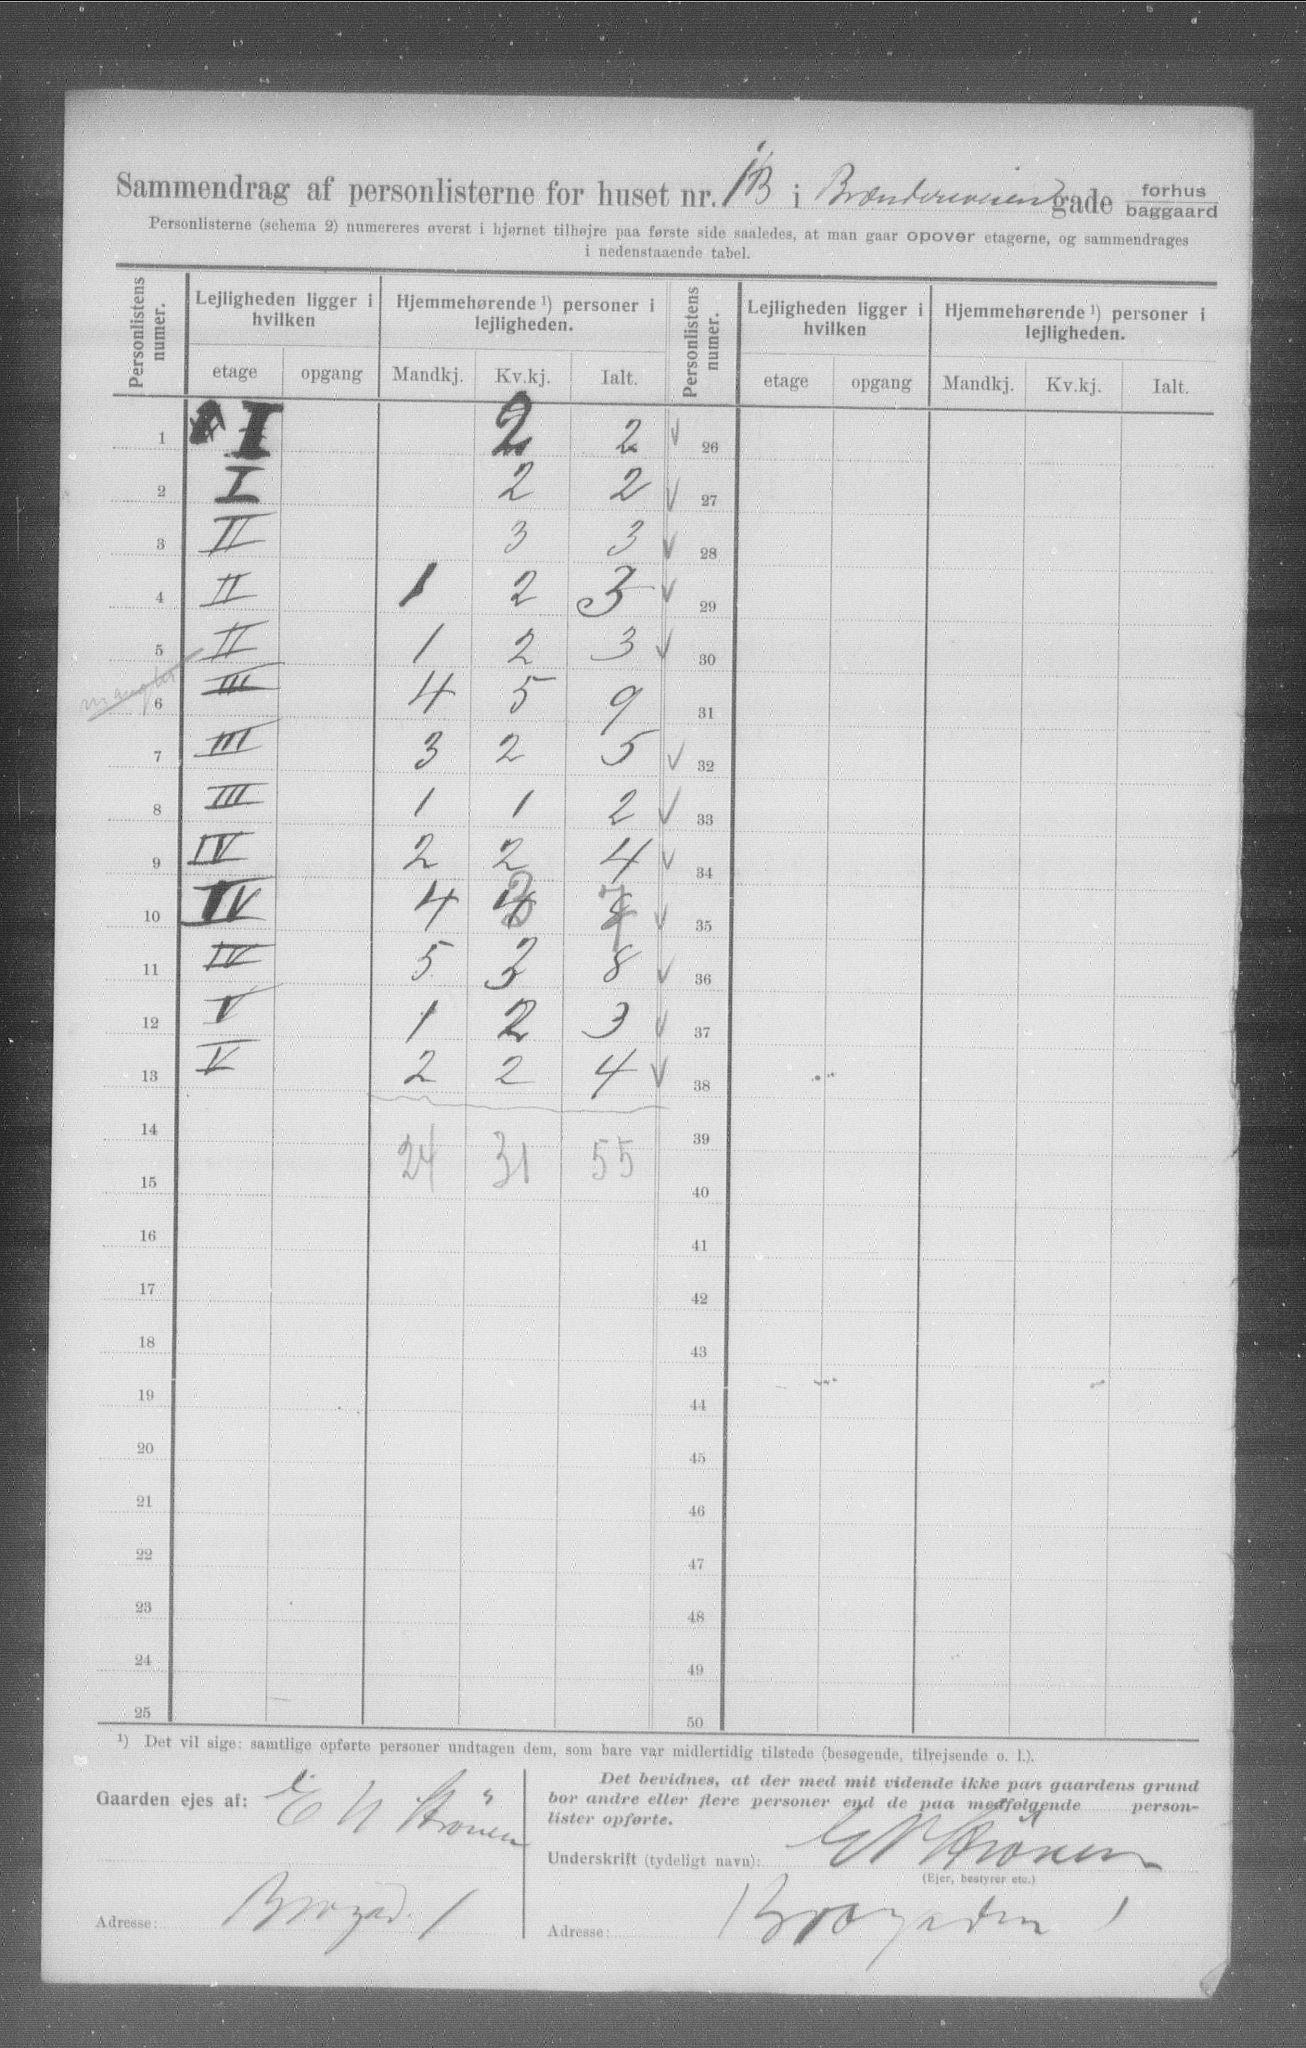 Sammendrag af personlisterne for huset nr. 1B i gade forhus baggaard
Personlisterne (schema 2) numereres øverst i hjørnet tilhøjre paa første side saaledes, at man gaar opover etagerne, og sammendrages
i nedenstaaende tabel.
Personlistens numer. Lejligheden ligger i hvilken Hjemmehørende ¹) personer i lejligheden. Personlistens numer. Lejligheden ligger i hvilken Hjemmehørende ¹) personer i lejligheden.
etage opgang Mandkj. Kv.kj. Ialt. etage opgang Mandkj. Kv.kj. Ialt.
1 I 2 2 26
2 I 2 2 27
3 II 3 3 28
4 II 1 2 3 29
5 II 1 2 3 30
mangler 6 III 4 5 9 31
7 III 3 2 5 32
8 III 1 1 2 33
9 IV 2 2 4 34
10 IV 4 3 7 35
11 IV 5 3 8 36
12 V 1 2 3 37
13 V 2 2 4 38
14 24 31 55 39
15 40
16 41
17 42
18 43
19 44
20 45
21 46
22 47
23 48
24 49
25 50
¹) Det vil sige: samtlige opførte personer undtagen dem, som bare var midlertidig tilstede (besøgende, tilrejsende o. l.).
Gaarden ejes af:
Adresse: 1
Det bevidnes, at der med mit vidende ikke paa gaardens grund
bor andre eller flere personer end de paa medfølgende person-
lister opførte.
Underskrift (tydeligt navn):
(Ejer, bestyrer etc.)
Adresse: 1